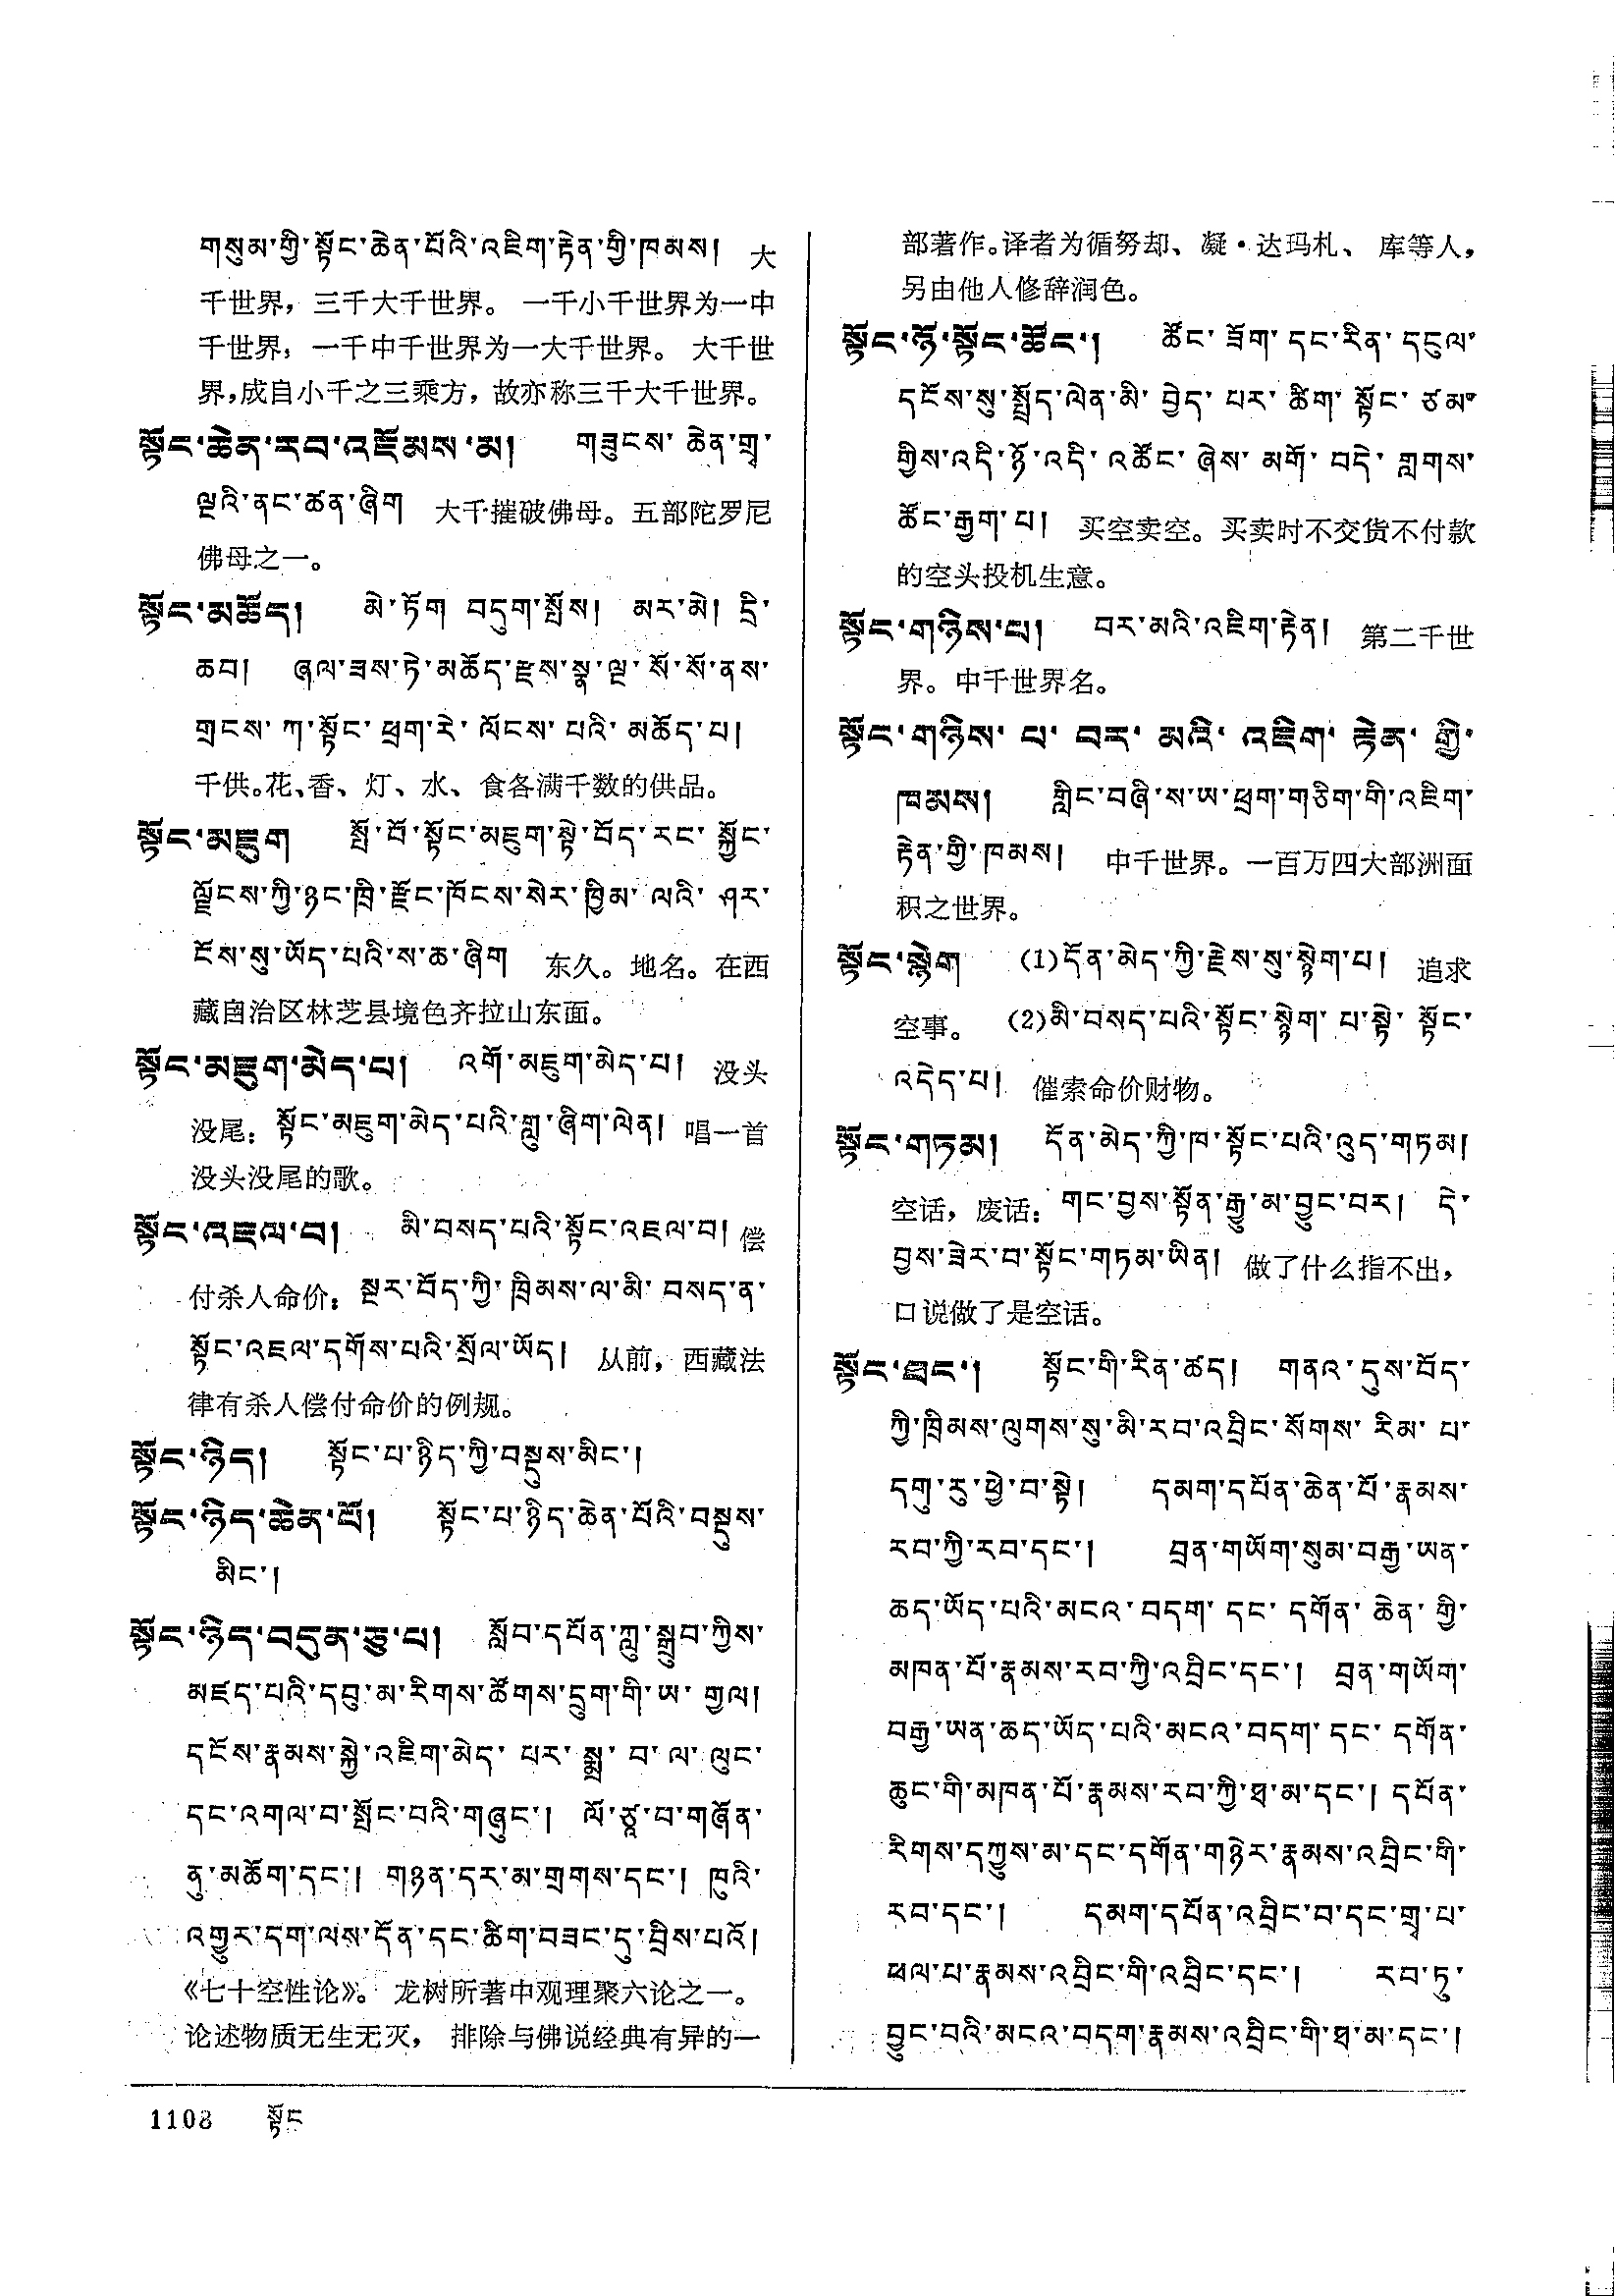 གསུམ་གྱི་སྟོང་ཆེན་པོའི་འཇིག་རྟེན་གྱི་ཁམས། 大
千世界，三千大千世界。 一千小千世界为一中
千世界，一千中千世界为一大千世界。 大千世
界，成自小千之三乘方，故亦称三千大千世界。
སྟོང་ཆེན་རབ་འཇོམས་མ། གཟུངས་ཆེན་གྲྭ་
ལྔའི་ནང་ཚན་ཞིག 大千摧破佛母。五部陀罗尼
佛母之一。
སྟོང་མཆོད། མེ་ཏོག བདུག་སྤོས། མར་མེ། དྲི་
ཆབ། ཞལ་ཟས་ཏེ་མཆོད་རྫས་སྣ་ལྔ་སོ་སོ་ནས་
གྲངས་ཀ་སྟོང་ཕྲག་རེ་ལོངས་པའི་མཆོད་པ།
千供。花、香、灯、水、食各满千数的供品。
སྟོང་མཇུག སྤོ་བོ་སྟོང་མཇུག་སྟེ་བོད་རང་སྐྱོང་
ལྗོངས་ཀྱི་ཉང་ཁྲི་རྫོང་ཁོངས་སེར་ཁྱིམ་ལའི་ཤར་
ངོས་སུ་ཡོད་པའི་ས་ཆ་ཞིག 东久。地名。在西
藏自治区林芝县境色齐拉山东面。
སྟོང་མཇུག་མེད་པ། འགོ་མཇུག་མེད་པ། 没头
没尾：སྟོང་མཇུག་མེད་པའི་གླུ་ཞིག་ལེན། 唱一首
没头没尾的歌。
སྟོང་འཇལ་བ། མི་བསད་པའི་སྟོང་འཇལ་བ། 偿
付杀人命价：སྔར་བོད་ཀྱི་ཁྲིམས་ལ་མི་བསད་ན་
སྟོང་འཇལ་དགོས་པའི་སྲོལ་ཡོད། 从前，西藏法
律有杀人偿付命价的例规。
སྟོང་ཉིད། སྟོང་པ་ཉིད་ཀྱི་བསྡུས་མིང་།
སྟོང་ཉིད་ཆེན་པོ། སྟོང་པ་ཉིད་ཆེན་པོའི་བསྡུས་
མིང་།
སྟོང་ཉིད་བདུན་ཅུ་པ། སློབ་དཔོན་ཀླུ་སྒྲུབ་ཀྱིས་
མཛད་པའི་དབུ་མ་རིགས་ཚོགས་དྲུག་གི་ཡ་གྱལ།
དངོས་རྣམས་སྐྱེ་འཇིག་མེད་པར་སྨྲ་བ་ལ་ལུང་
དང་འགལ་བ་སྤོང་བའི་གཞུང་། ལོ་ཙཱ་བ་གཞོན་
ནུ་མཆོག་དང་། གཉན་དར་མ་གྲགས་དང་། ཁུའི་
འགྱུར་དག་ལས་དོན་དང་ཚིག་བཟང་དུ་བྲིས་པའོ།
《七十空性论》。 龙树所著中观理聚六论之一。
论述物质无生无灭， 排除与佛说经典有异的一
部著作。译者为循努却、凝·达玛札、 库等人，
另由他人修辞润色。
སྟོང་ཉོ་སྟོང་ཚོང་། ཚོང་ཟོག་དང་རིན་དངུལ་
དངོས་སུ་སྤྲོད་ལེན་མི་བྱེད་པར་ཚིག་སྟོང་ཙམ་
གྱིས་འདི་ཉོ་འདི་འཚོང་ཞེས་མགོ་བདེ་གླགས་
ཚོང་རྒྱག་པ། 买空卖空。买卖时不交货不付款
的空头投机生意。
སྟོང་གཉིས་པ། བར་མའི་འཇིག་རྟེན། 第二千世
界。中千世界名。
སྟོང་གཉིས་པ་བར་མའི་འཇིག་རྟེན་གྱི་
ཁམས། གླིང་བཞི་ས་ཡ་ཕྲག་གཅིག་གི་འཇིག་
རྟེན་གྱི་ཁམས། 中千世界。一百万四大部洲面
积之世界。
སྟོང་སྙེག (1)དོན་མེད་ཀྱི་རྗེས་སུ་སྙེག་པ། 追求
空事。 (2)མི་བསད་པའི་སྟོང་སྙེག་པ་སྟེ་སྟོང་
འདེད་པ། 催索命价财物。
སྟོང་གཏམ། དོན་མེད་ཀྱི་ཁ་སྟོང་པའི་འུད་གཏམ།
空话，废话：གང་བྱས་སྟོན་རྒྱུ་མ་བྱུང་བར། དེ་
བྱས་ཟེར་བ་སྟོང་གཏམ་ཡིན། 做了什么指不出，
口说做了是空话。
སྟོང་ཐང་། སྟོང་གི་རིན་ཚད། གནའ་དུས་བོད་
ཀྱི་ཁྲིམས་ལུགས་སུ་མི་རབ་འབྲིང་སོགས་རིམ་པ་
དགུ་རུ་ཕྱེ་བ་སྟེ། དམག་དཔོན་ཆེན་པོ་རྣམས་
རབ་ཀྱི་རབ་དང་། བྲན་གཡོག་སུམ་བརྒྱ་ཡན་
ཆད་ཡོད་པའི་མངའ་བདག་དང་དགོན་ཆེན་གྱི་
མཁན་པོ་རྣམས་རབ་ཀྱི་འབྲིང་དང་། བྲན་གཡོག་
བརྒྱ་ཡན་ཆད་ཡོད་པའི་མངའ་བདག་དང་དགོན་
ཆུང་གི་མཁན་པོ་རྣམས་རབ་ཀྱི་ཐ་མ་དང་། དཔོན་
རིགས་དཀྱུས་མ་དང་དགོན་གཉེར་རྣམས་འབྲིང་གི་
རབ་དང་། དམག་དཔོན་འབྲིང་བ་དང་གྲྭ་པ་
ཕལ་པ་རྣམས་འབྲིང་གི་འབྲིང་དང་། རབ་ཏུ་
བྱུང་བའི་མངའ་བདག་རྣམས་འབྲིང་གི་ཐ་མ་དང་།
1108 སྟོང